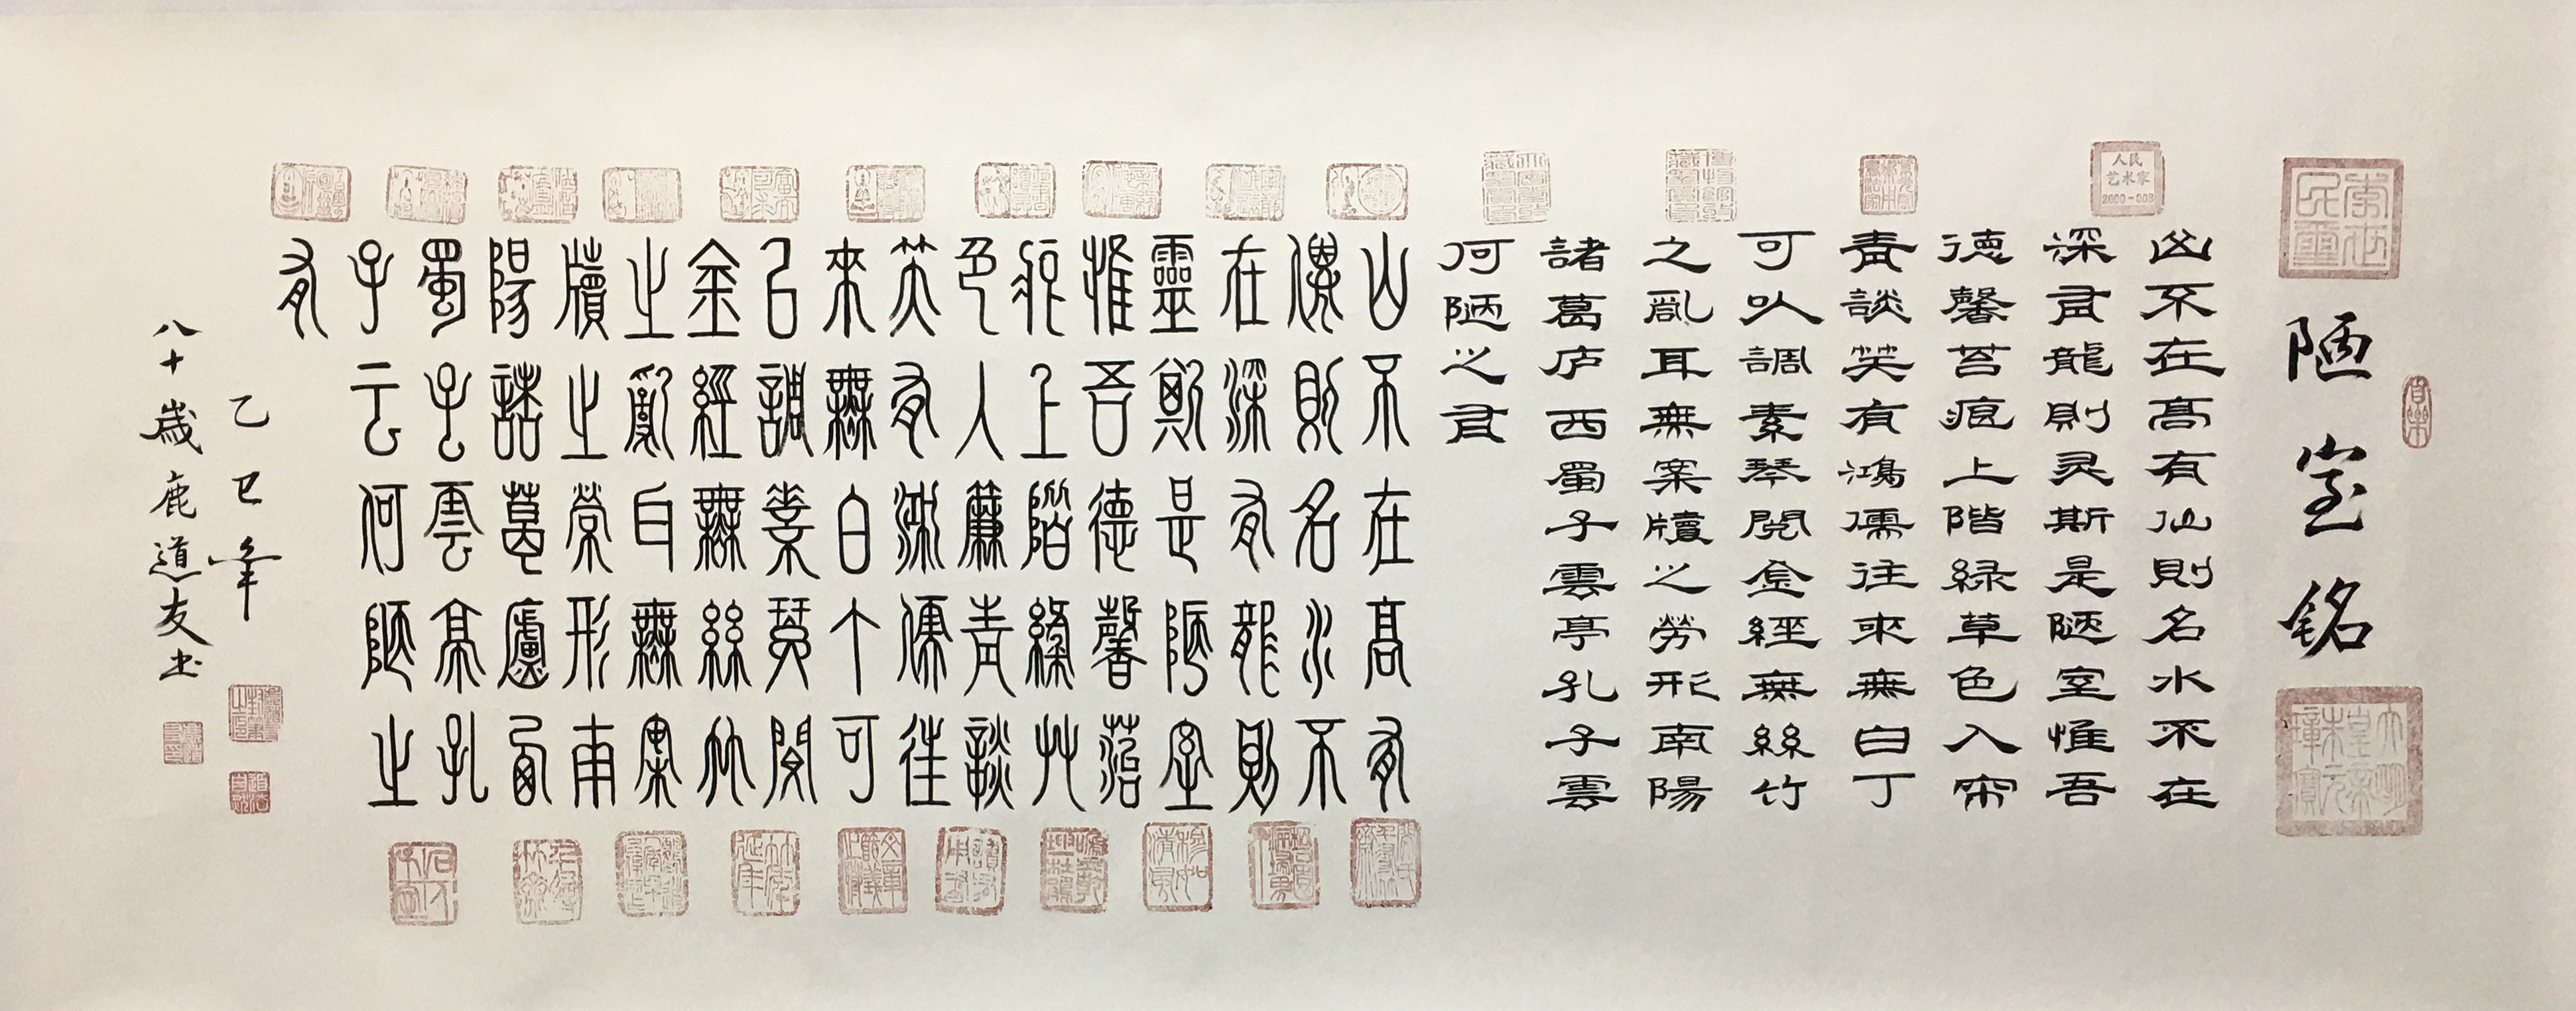 陋室铭
人民
艺术家
山不在高有仙則名水不在
深有龍則灵斯是陋室惟吾
德馨苔痕上階緑草色入帘
青談笑有鴻儒往来無白丁
可以調素琴閱金經無絲竹
之亂耳無案牘之勞形南陽
諸葛庐西蜀子雲亭孔子雲
何陋之有
山不在高有
僊則名水不
在深有龍則
靈斯是陋室
惟吾德馨苔
痕上階綠艸
色人簾青談
笑有鴻儒往
來無白丁可
以調素琴閱
金經無絲竹
之亂耳無案
牘之勞形南
陽諸葛廬西
蜀子雲亭孔
子云何陋之
有
乙巳年
八十歲鹿道友书